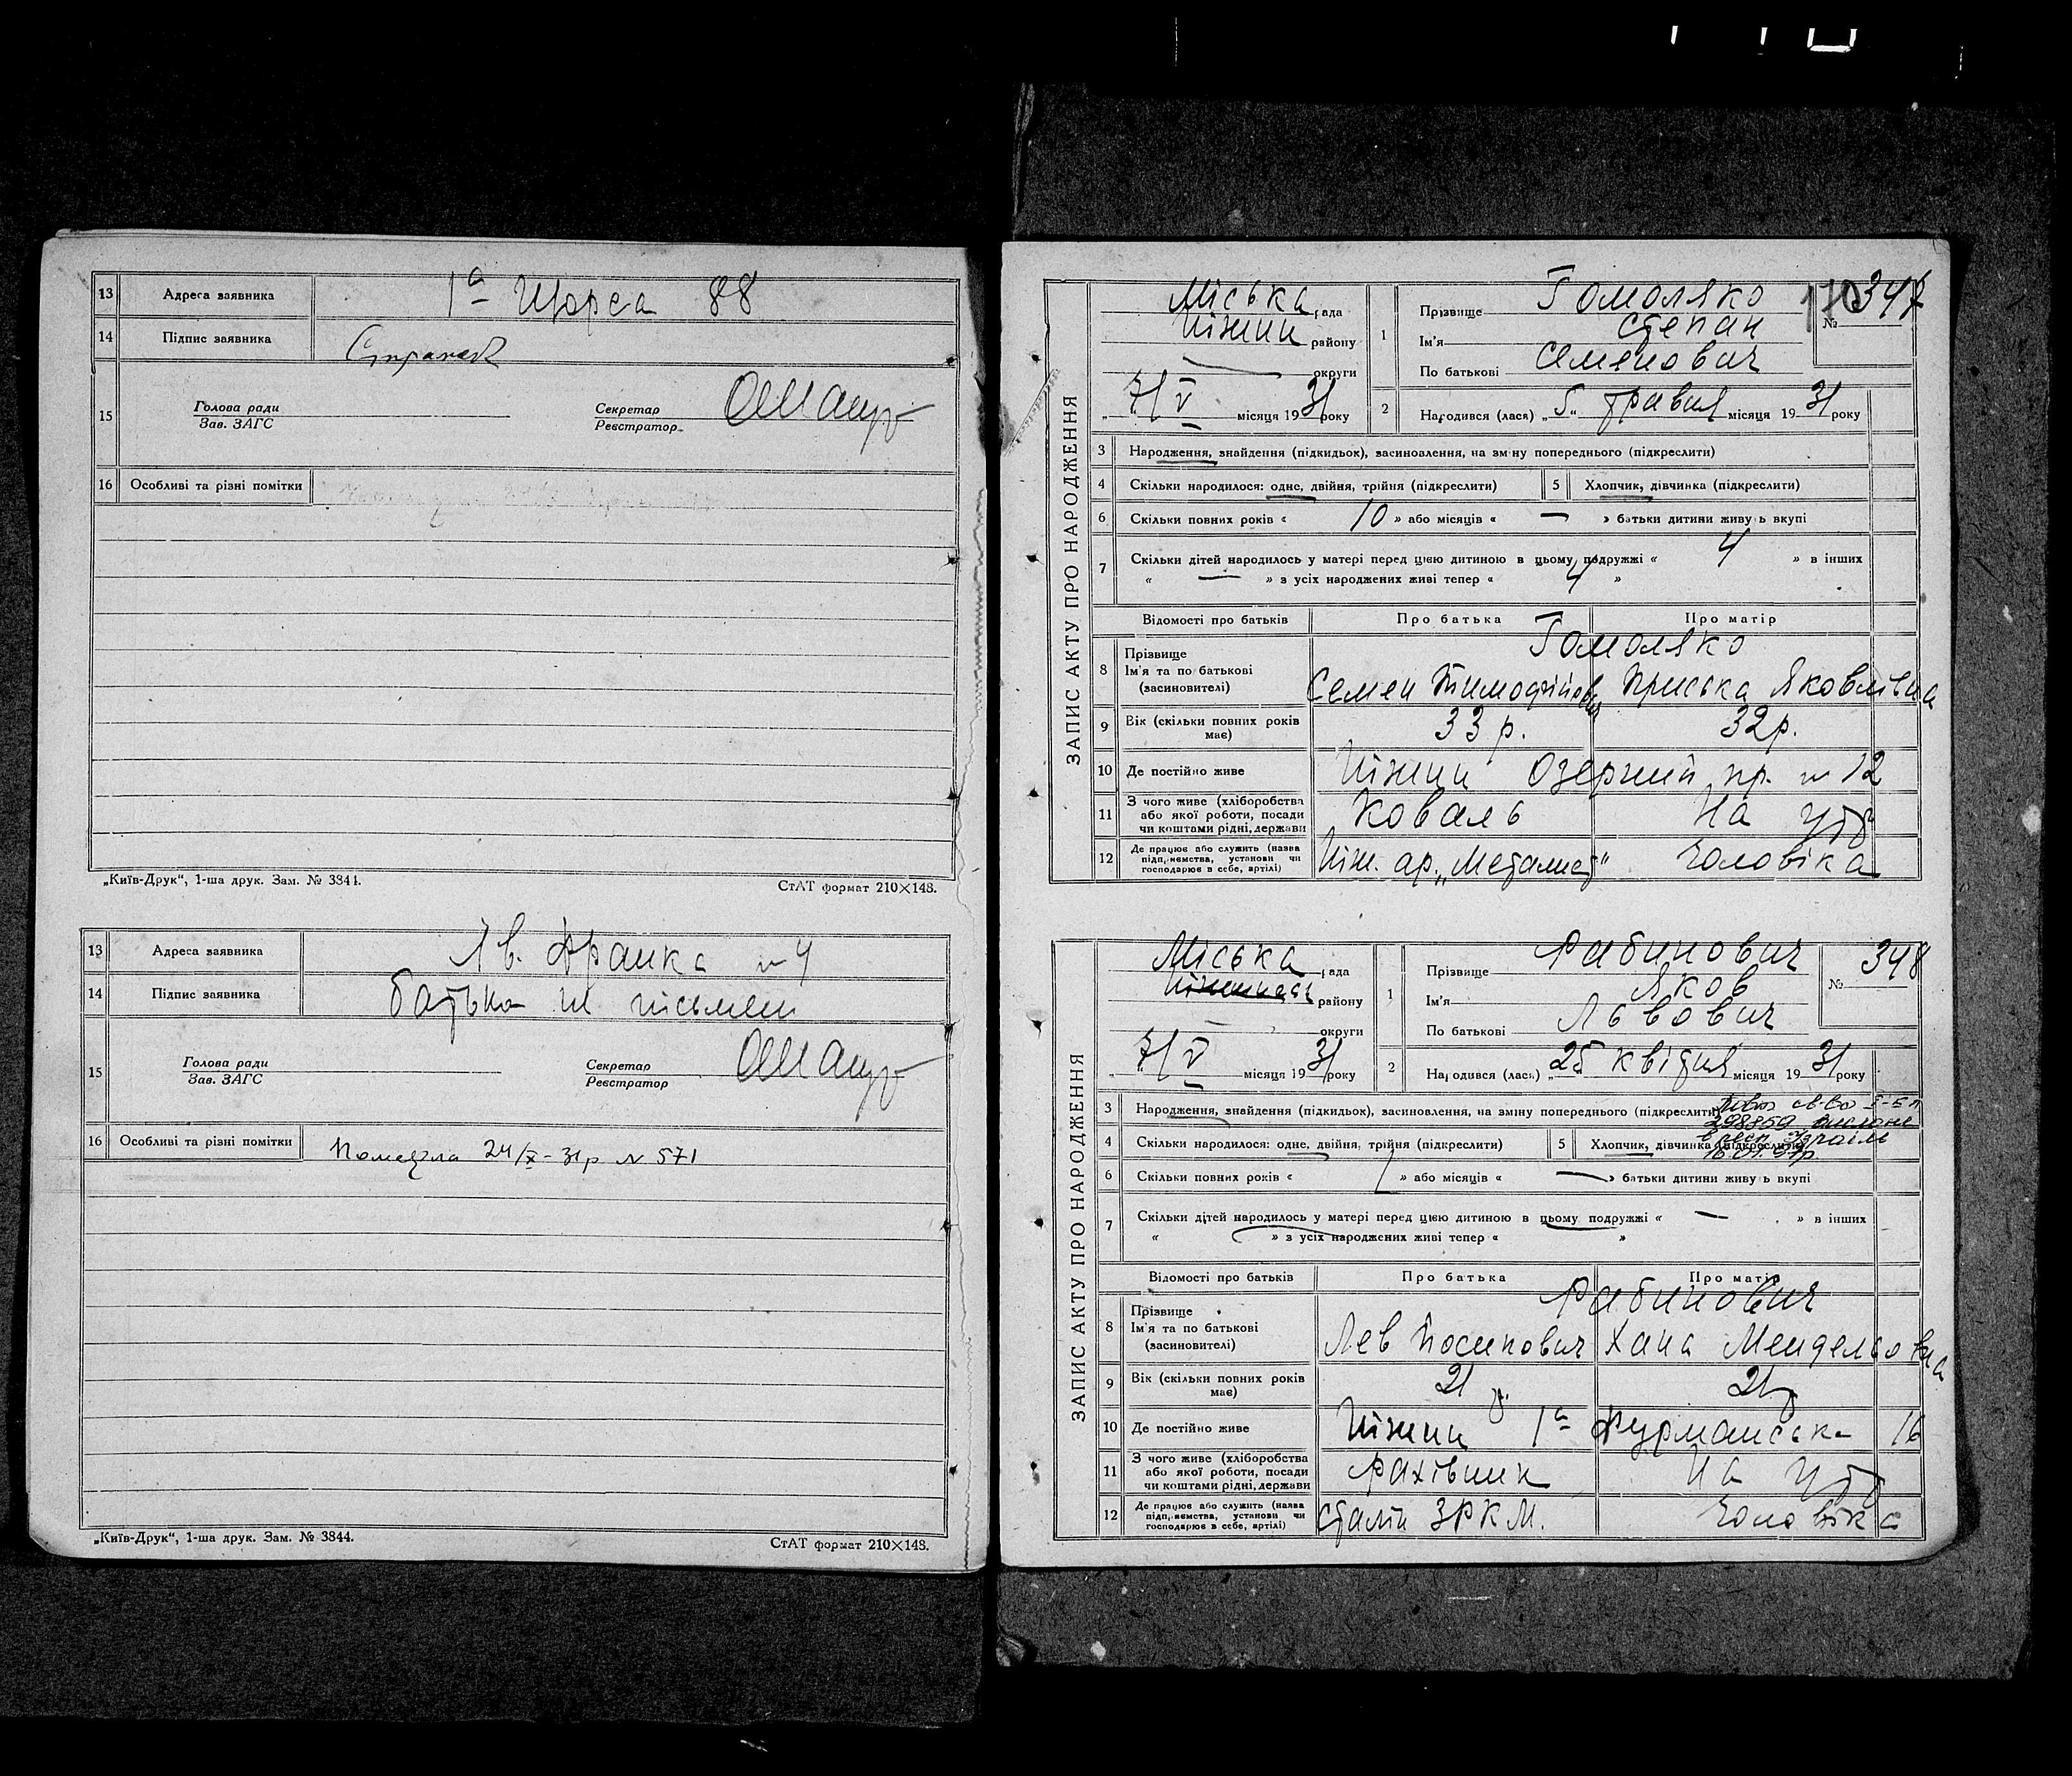 13 Адреса заявника 1а Щорса 88
14 Підпис заявника
15 Голова ради Зав. ЗАГС Секретар Реєстратор
16 Особливі та різні помітки
„Київ-Друк“, 1-ша друк. Зам. № 3844. СтАТ формат 210×148.
13 Адреса заявника Ів. Франка № 4
14 Підпис заявника батько не письмен
15 Голова ради Зав. ЗАГС Секретар Реєстратор
16 Особливі та різні помітки Померла 24/X-31р № 571
„Київ-Друк“, 1-ша друк. Зам. № 3844. СтАТ формат 210×148.
ЗАПИС АКТУ ПРО НАРОДЖЕННЯ
Міська рада
Ніжин району
округи
7/V місяця 1931 року
1 Прізвище Гомоляко
Ім'я Степан
По батькові Семенович
№ 347
170
2 Народився (лася) „5“ травня місяця 1931 року
3 Народження, знайдення (підкидьок), засиновлення, на зміну попереднього (підкреслити)
4 Скільки народилося: одне, двійня, трійня (підкреслити) 5 Хлопчик, дівчинка (підкреслити)
6 Скільки повних років « 10 » або місяців « — » батьки дитини живуть вкупі
7 Скільки дітей народилось у матері перед цією дитиною в цьому подружжі « 4 » в інших
« — » з усіх народжених живі тепер « 4 »
Відомості про батьків Про батька Про матір
8 Прізвище Ім'я та по батькові (засиновителі) Гомоляко
Семен Тимофійович Приська Яковлівна
9 Вік (скільки повних років має) 33 р. 32 р.
10 Де постійно живе Ніжин Озерний пр. № 12
11 З чого живе (хліборобства або якої роботи, посади чи коштами рідні, держави Коваль На утр
12 Де працює або служить (назва підприємства, установи чи господарює в себе, артілі) Ніж. ар. „Металист“ чоловіка
ЗАПИС АКТУ ПРО НАРОДЖЕННЯ
Міська рада
району
округи
7/V місяця 1931 року
1 Прізвище Рабинович
Ім'я Яков
По батькові Львович
№ 348
2 Народився (лася) „25 квітня місяця 1931 року
3 Народження, знайдення (підкидьок), засиновлення, на зміну попереднього (підкреслити)
4 Скільки народилося: одне, двійня, трійня (підкреслити) 5 Хлопчик, дівчинка (підкреслити)
6 Скільки повних років « 1 » або місяців « — » батьки дитини живуть вкупі
7 Скільки дітей народилось у матері перед цією дитиною в цьому подружжі « — » в інших
« » з усіх народжених живі тепер « »
Відомості про батьків Про батька Про матір
8 Прізвище Ім'я та по батькові (засиновителі) Рабинович
Лев Йосипович Хана Мендельовна
9 Вік (скільки повних років має) 21 р. 21 р
10 Де постійно живе Ніжин 1а Фурманська 16
11 З чого живе (хліборобства або якої роботи, посади чи коштами рідні, держави Рахівник На утр
12 Де працює або служить (назва підприємства, установи чи господарює в себе, артілі) ЗРКМ. чоловіка